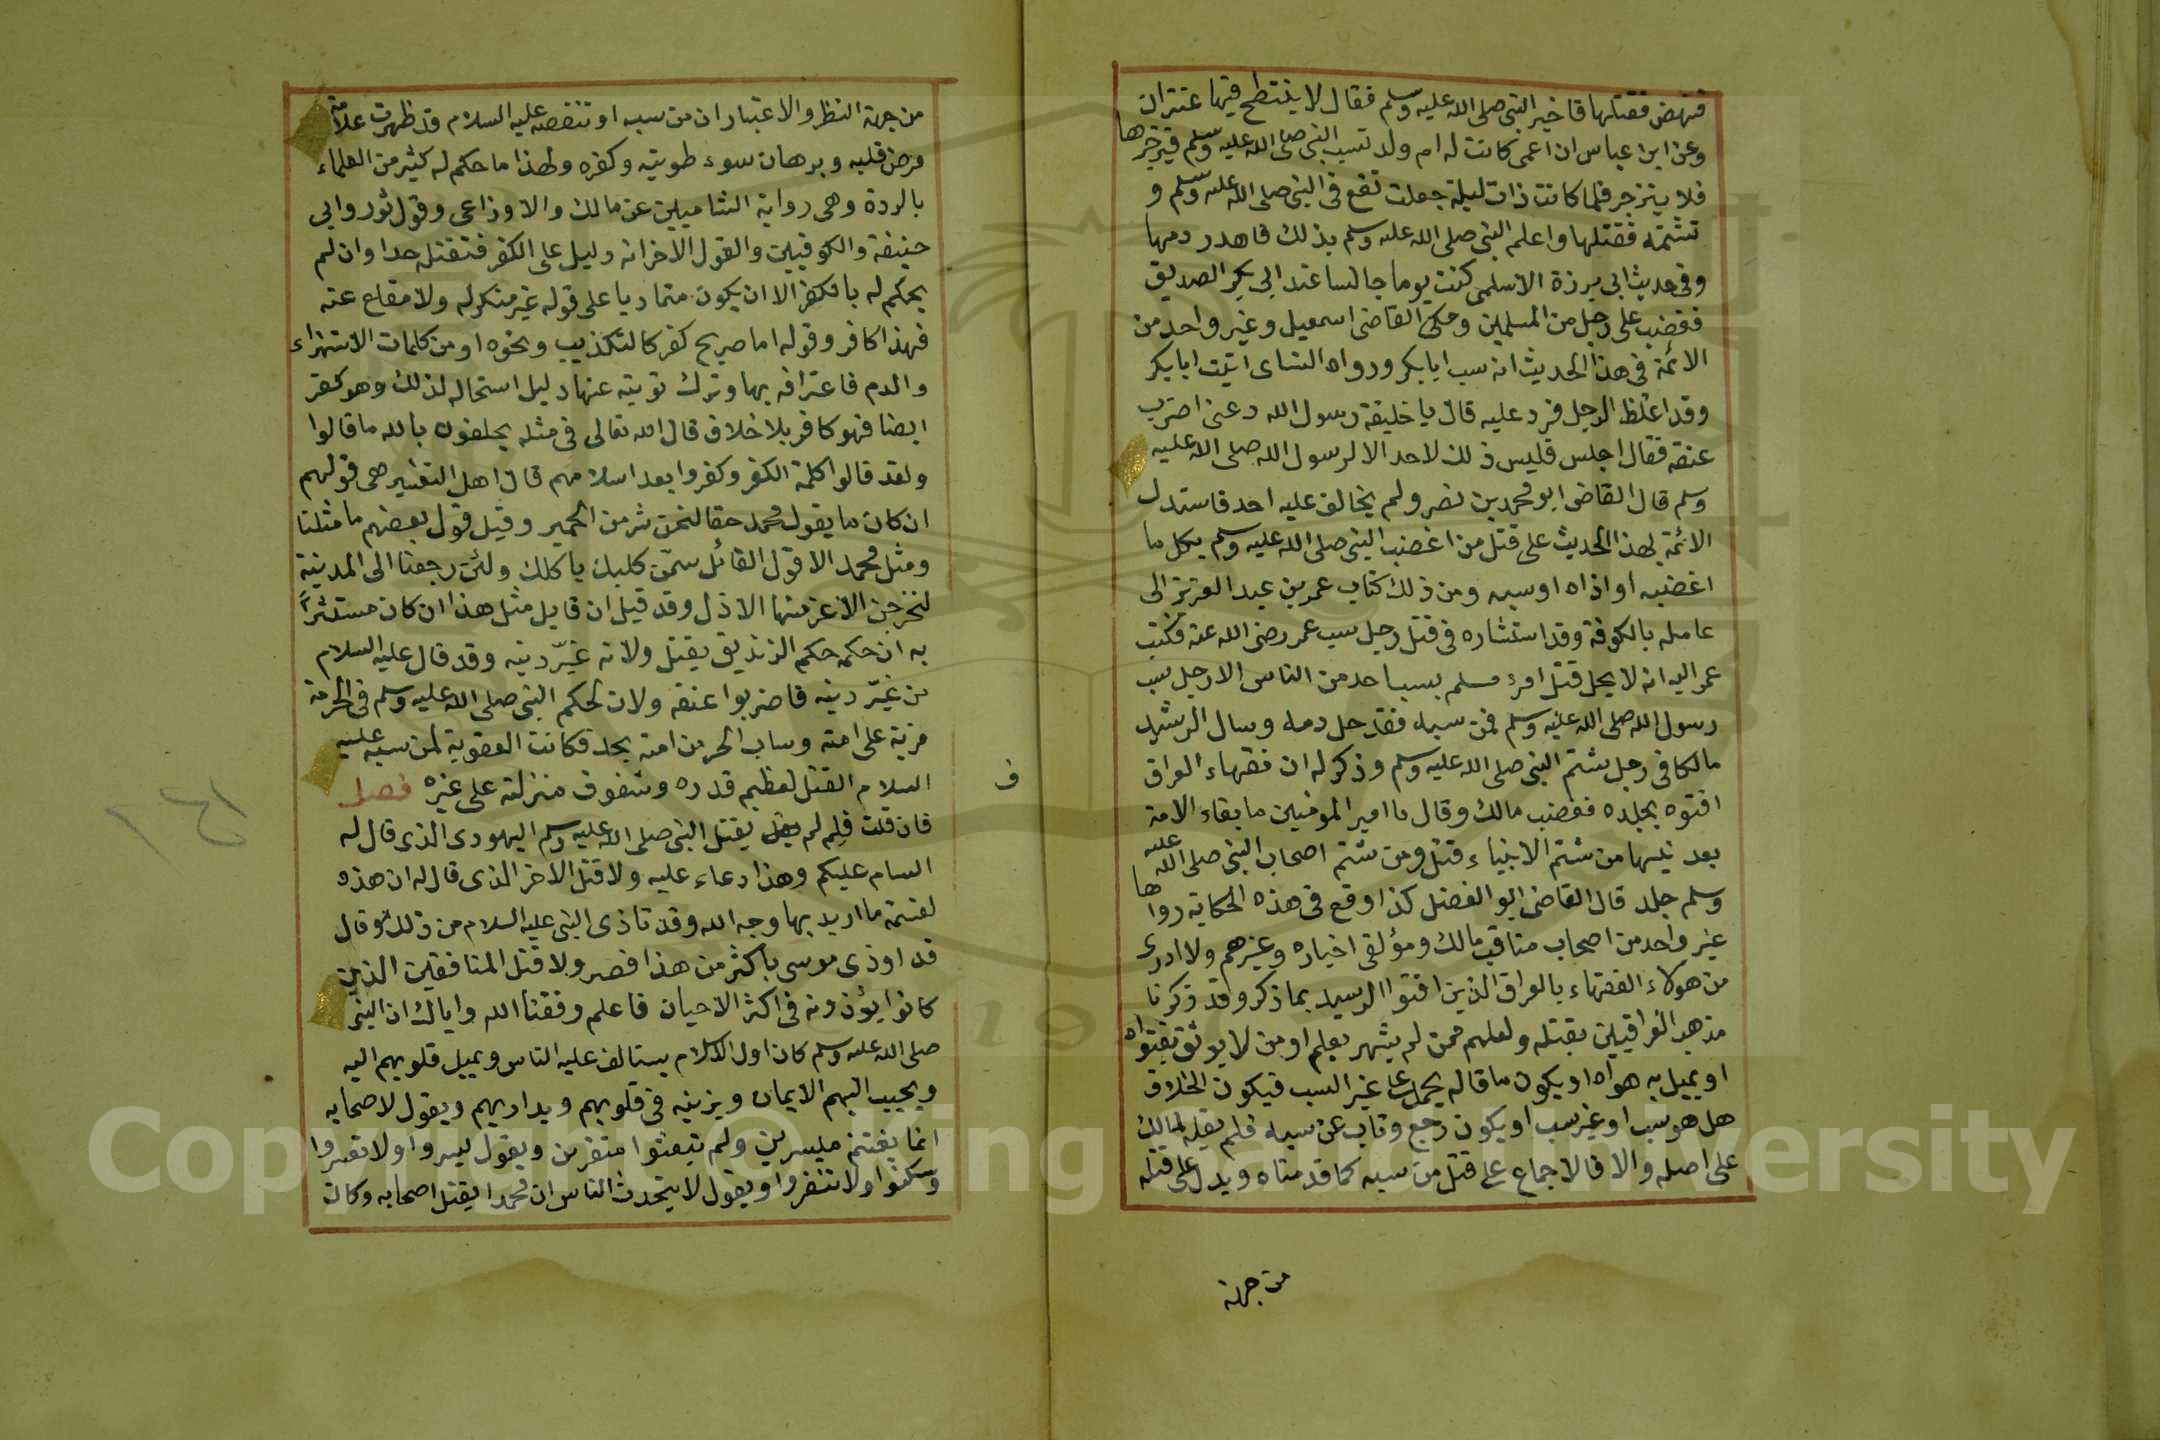 فنهض فقتلها فاخبر النبى صلى الله عليه وسلم فقال لا ينتطح فيها عنزان
وعن ابن عباس ان اعمى كانت له ام ولد تسب النبى صلى الله عليه وسلم فيزجرها
فلا ينزجر فلما كانت ذات ليلة جعلت تقع فى النبى صلى الله عليه وسلم و
تشتمه فقتلها واعلم النبى صلى الله عليه وسلم بذلك فاهدر دمها
وفى حديث ابى برزة الاسلمى كنت يوما جالسا عند ابى بكر الصديق
فغضب على رجل من المسلمين وحكى القاضى اسمعيل وغير واحد من
الائمة فى هذا الحديث انه سب ابا بكر ورواه النساى اتيت ابا بكر
وقد اغلظ الرجل فرد عليه قال يا خليفة رسول الله دعنى اضرب
عنقه فقال اجلس فليس ذلك لاحد الا لرسول الله صلى الله عليه
وسلم قال القاضى ابو محمد بن نصر ولم يخالف عليه احد فاستدل
الائمة بهذا الحديث على قتل من اغضب النبى صلى الله عليه وسلم بكل ما
اغضبه او اذاه او سبه ومن ذلك كتاب عمر بن عبد العزيز الى
عامله بالكوفة وقد استشاره فى قتل رجل سب عمر رضى الله عنه فكتب
عمر اليه انه لا يحل قتل امرئ مسلم بسب احد من الناس الا رجل سب
رسول الله صلى الله عليه وسلم فمن سبه فقد حل دمه وسال الرشيد
مالكا فى رجل شتم النبى صلى الله عليه وسلم وذكر له ان فقهاء العراق
افتوه بجلده فغضب مالك وقال يا امير المومنين ما بقاء الامة
بعد نبيها من شتم الانبياء قتل ومن شتم اصحاب النبى صلى الله عليه
وسلم جلد قال القاضى ابو الفضل كذا وقع فى هذه الحكاية رواها
غير واحد من اصحاب مناقب مالك ومؤلفى اخباره وغيرهم ولا ادرى
من هولاء الفقهاء بالعراق الذين افتوا الرسيد بما ذكر وقد ذكرنا
مذهب العراقيين بقتله ولعلهم ممن لم يشهر بعلم او من لا يوثق بفتواه
او يميل به هواه او يكون ما قاله يحمل على غير السب فيكون الخلاف
هل هو سب او غير سب او يكون رجع وتاب عن سبه فلم يقله لمالك
على اصله والا فالاجماع على قتل من سبه كما قدمناه ويدل على قتله
من جهة
من جهة النظر والاعتبار ان من سبه او تنقصه عليه السلام قد ظهرت علامة
مرض قلبه وبرهان سوء طويته وكفره ولهذا ما حكم له كثير من العلماء
بالردة وهى رواية الشاميين عن مالك والاوذاعى وقول ثور وابى
حنيفة والكوفيين والقول الاخر انه دليل على الكفر فتقتله حدا وان لم
يحكم له بالكفر الا ان يكون متماديا على قوله غير منكر له ولا مقلع عنه
فهذا كافر وقوله اما صريح كفر كالتكذيب ونحوه او من كلمات الاستهزاء
والدم فاعترافه بها وترك توبته عنها دليل استحاله لذلك وهو كفر
ايضا فهو كافر بلا خلاف قال الله تعالى فى مثله يحلفون بالله ما قالوا
ولقد قالوا كلمة الكفر وكفروا بعد اسلامهم قال اهل التفسير هى قولهم
ان كان ما يقول محمد حقا لنحن شر من الحمير وقيل قول بعضهم ما مثلنا
ومثل محمد الا قول القائل سمّن كلبك ياكلك ولئن رجعنا الى المدينة
لنخرجن الاعز منها الاذل وقد قيل ان قايل مثل هذا ان كان مستترًا
به ان حكمه حكم الزنديق يقتل ولانه غيّر دينه وقد قال عليه السلام
من غيّر دينه فاضربوا عنقه ولان لحكم النبى صلى الله عليه وسلم فى الحرمة
مزية على امته وساب الحر من امته يحد فكانت العقوبة لمن سبه عليه
السلام القتل لعظيم قدره وشفوف منزلته على غيره فصل
ف
فان قلت فلِم لم يقتل النبى صلى الله عليه وسلم اليهودى الذى قال له
السام عليكم وهذا دعاء عليه ولا قتل الاخر الذى قال له ان هذه
لقسمة ما اريد بها وجه الله وقد تاذى النبى عليه السلام من ذلك وقال
قد اوذى موسى باكثر من هذا فصبر ولا قتل المنافقين الذين
كانوا يؤذونه فى اكثر الاحيان فاعلم وفقنا الله واياك ان النبى
صلى الله عليه وسلم كان اول الاسلام يستالف عليه الناس ويميل قلوبهم اليه
ويحبب اليهم الايمان ويزينه فى قلوبهم ويداريهم ويقول لاصحابه
انما بعثتم ميسرين ولم تبعثوا منفرين ويقول يسروا ولا تعسروا
وسكنوا ولا تنفروا ويقول لا يتحدث الناس ان محمدا يقتل اصحابه وكان
Copyright © King Saud University